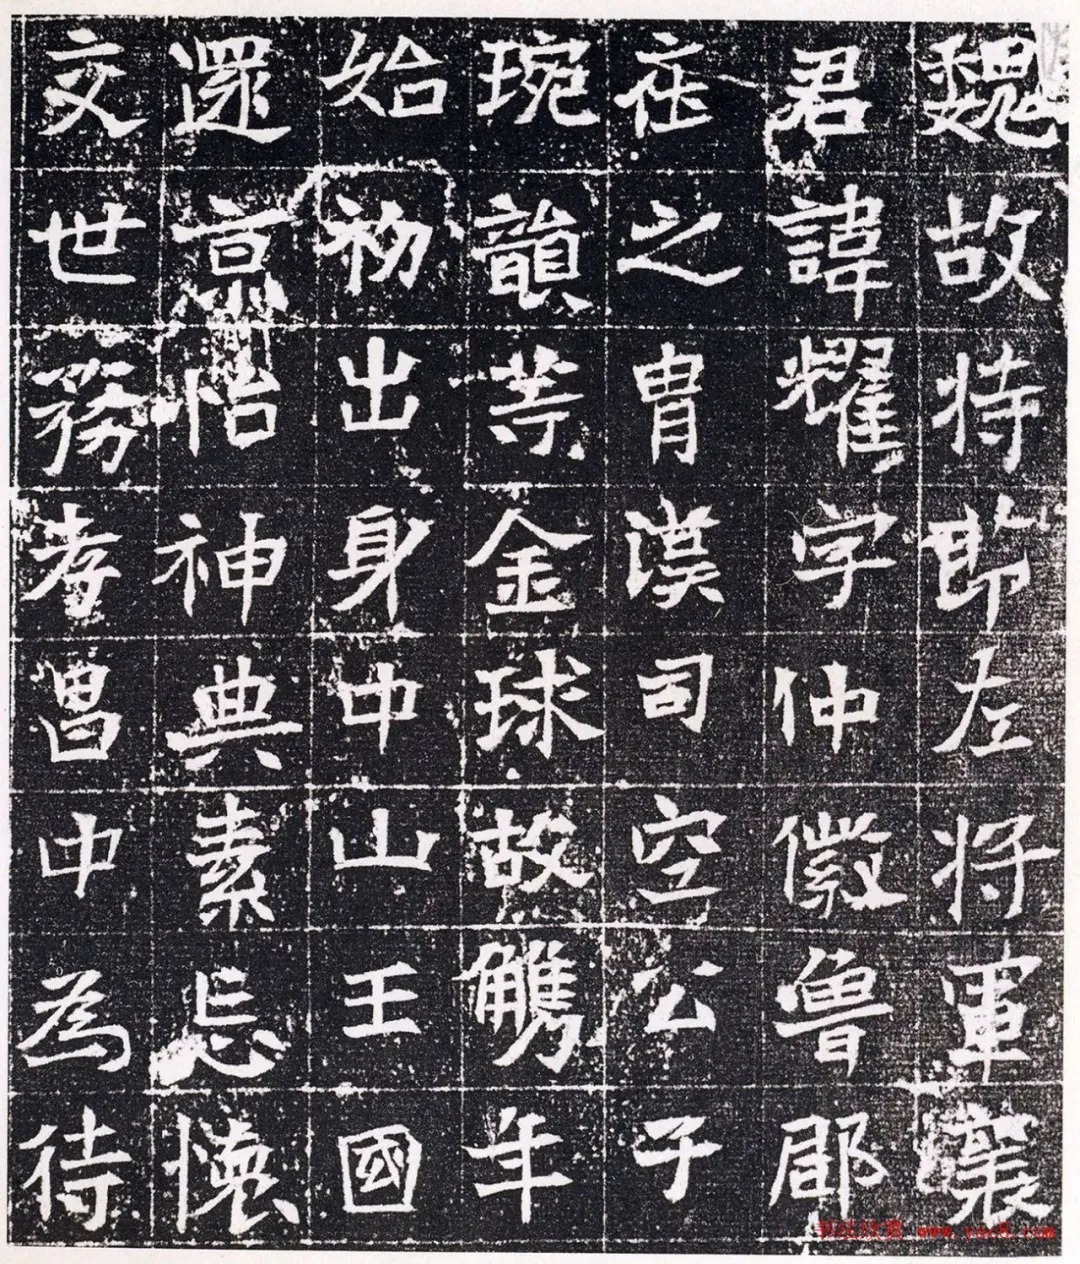 魏故持節左將軍襄
君諱耀字仲徽魯郡
庄之胄漢司空公子
琬韻等金球故觿年
始初出身中山王國
還京怡神典素忘懷
交世務孝昌中為待